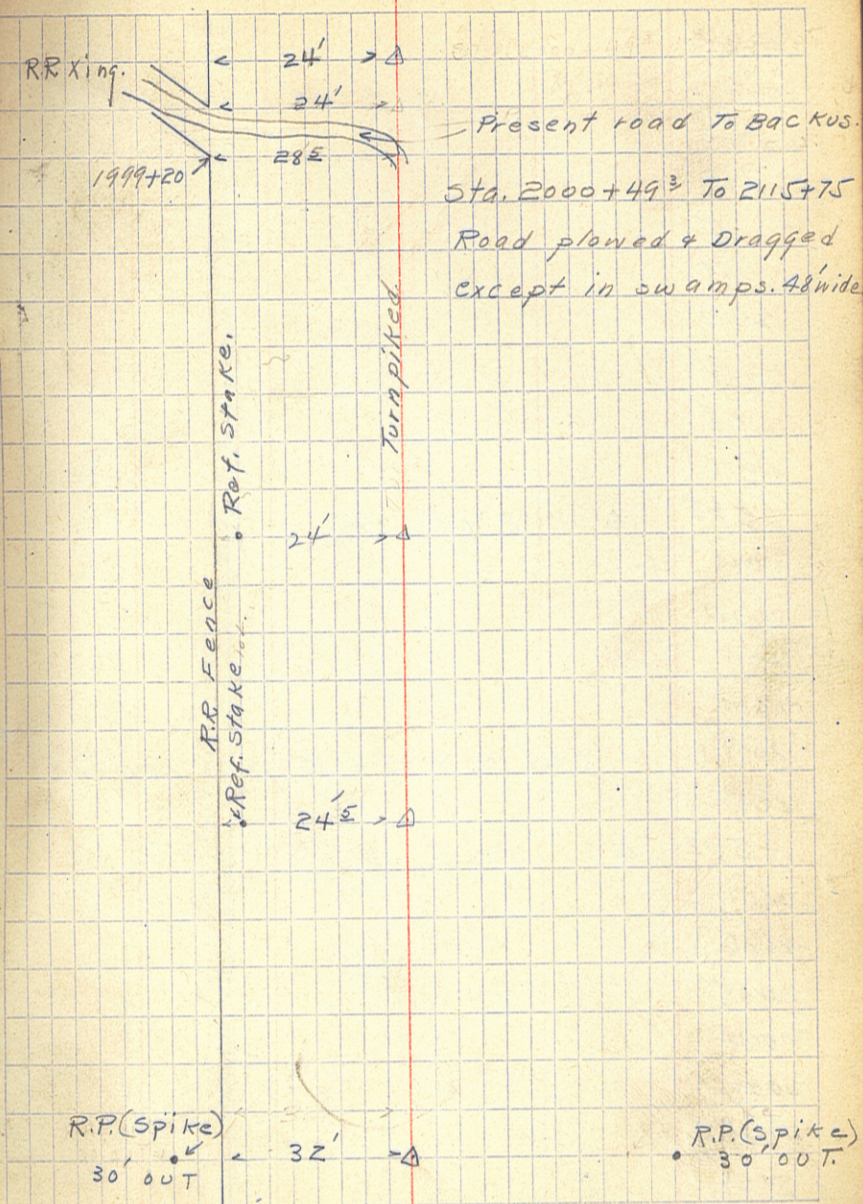 R.R Xing.
24'
24'
Present road To Backus.
28 5
1999+20
Sta. 2000+49 3 To 2115+75
Road plowed & Dragged
except in swamps. 48' wide
Turnpiked.
Ref. Stake.
24'
R.R. Fence
Ref. Stake
24' 5
R.P. (Spike)
30' OUT
32'
R.P. (Spike)
30' OUT.